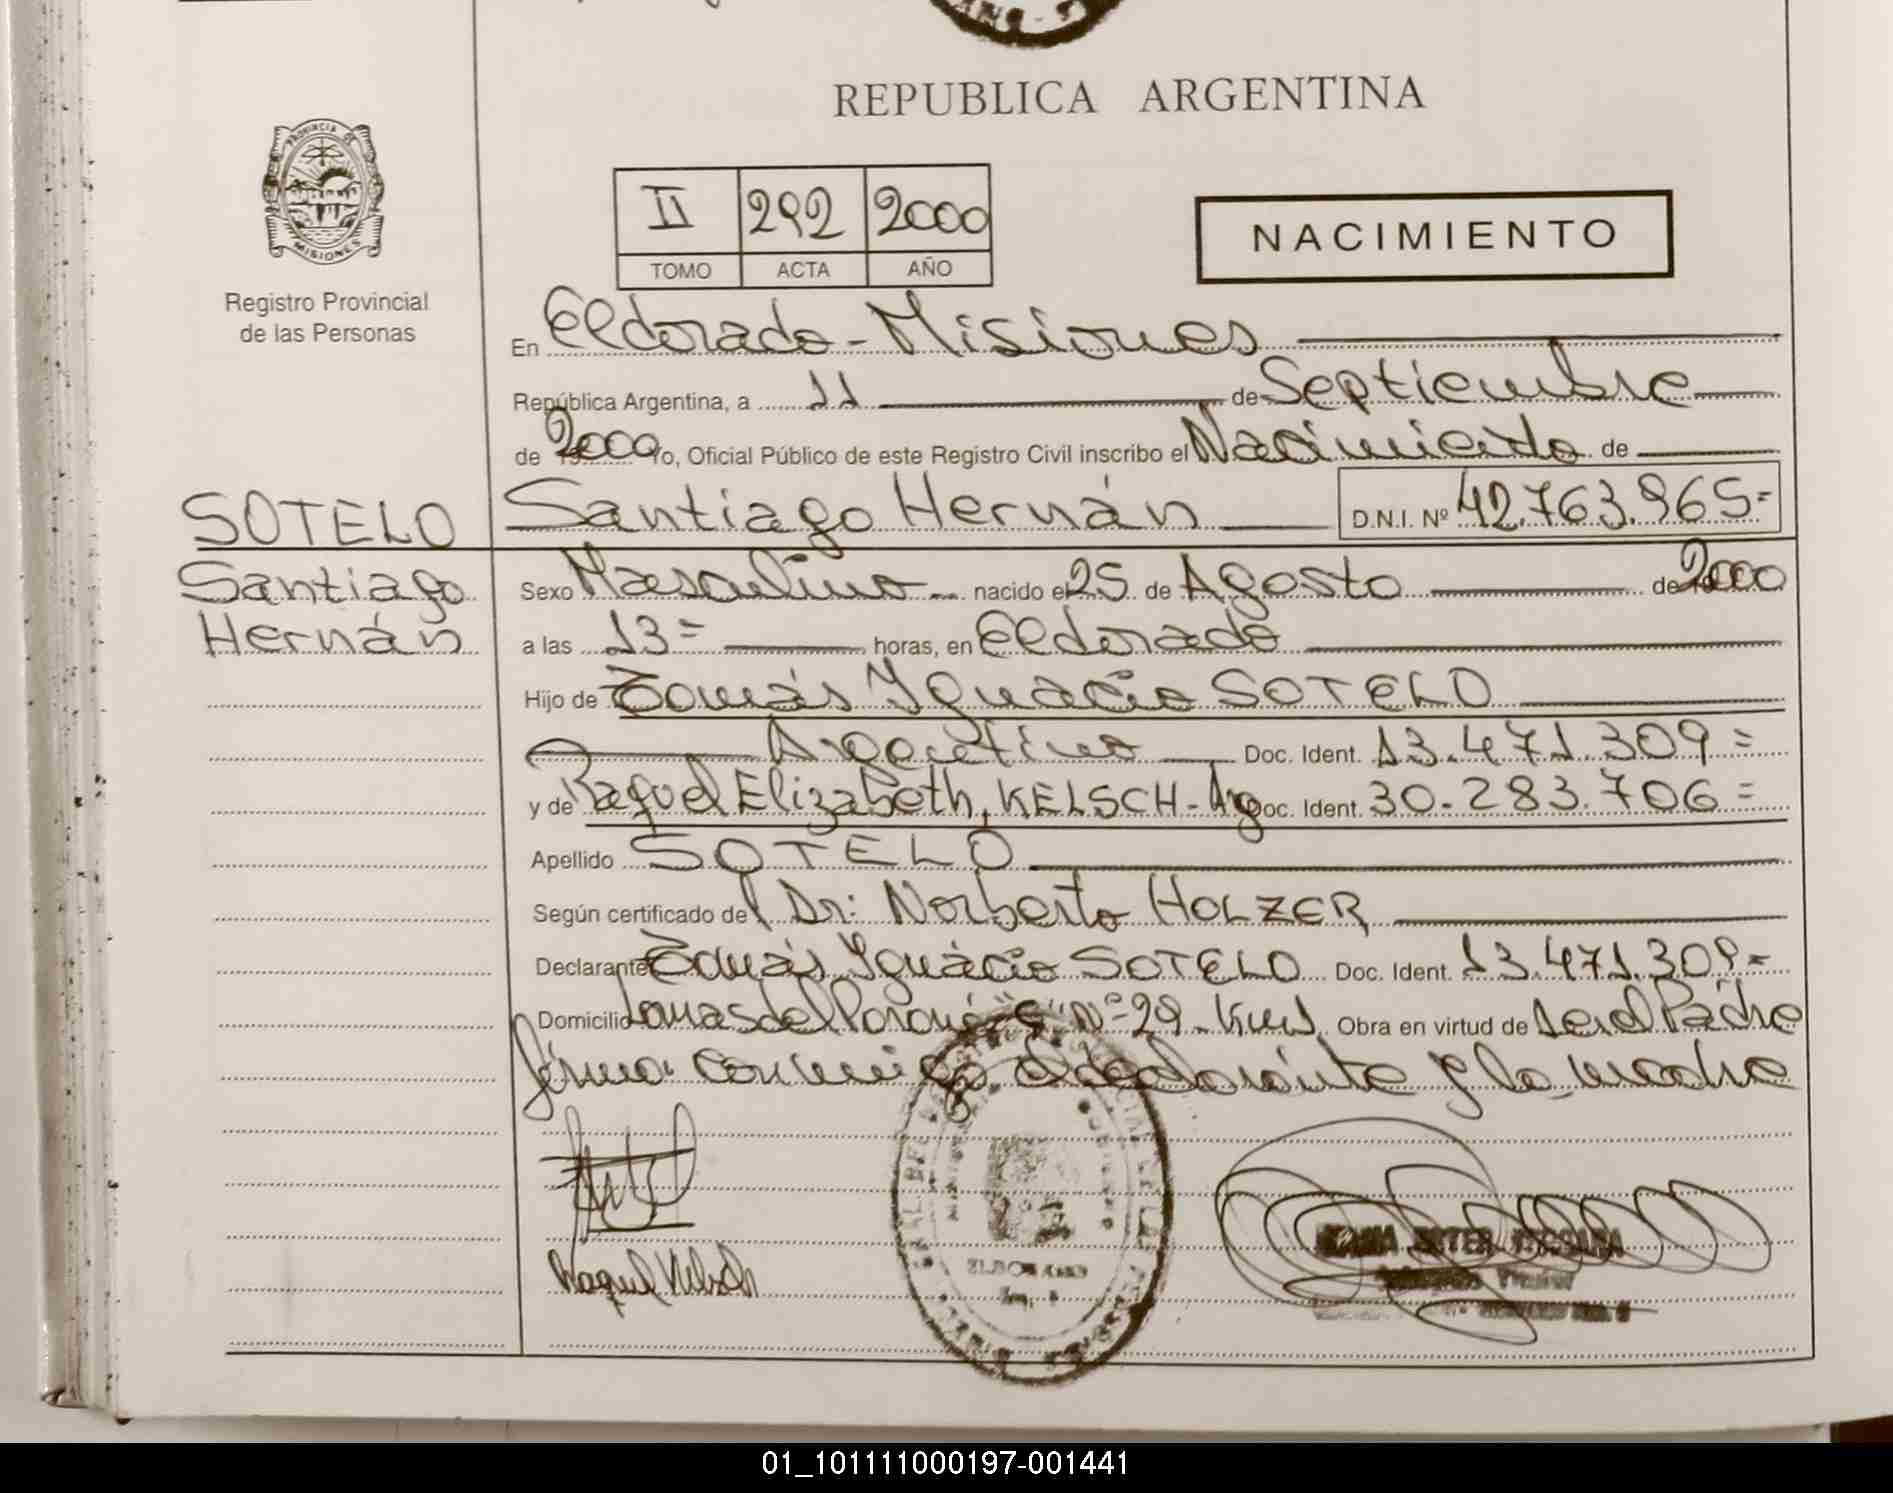 REPUBLICA ARGENTINA
PROVINCIA DE
MISIONES
Registro Provincial
de las Personas
II 292 2000
TOMO ACTA AÑO
NACIMIENTO
En Eldorado - Misiones
República Argentina, a 11 de Septiembre
de 2000 Yo, Oficial Público de este Registro Civil inscribo el Nacimiento de
SOTELO
Santiago Hernán D.N.I. Nº 42.763.965=
Santiago
Hernán
Sexo Masculino nacido el 25 de Agosto de 2000
a las 13= horas, en Eldorado
Hijo de Tomás Ignacio SOTELO
Argentino Doc. Ident. 13.471.309=
y de Raquel Elizabeth, KELSCH - Arg Doc. Ident. 30.283.706=
Apellido SOTELO
Según certificado del Dr: Norberto HOLZER
Declarante Tomás Ignacio SOTELO Doc. Ident. 13.471.309=
Domicilio Lomas del Nº 29 - Obra en virtud de ser el Padre
firma conmigo el declarante y la madre
Raquel Kelsch
01_101111000197-001441